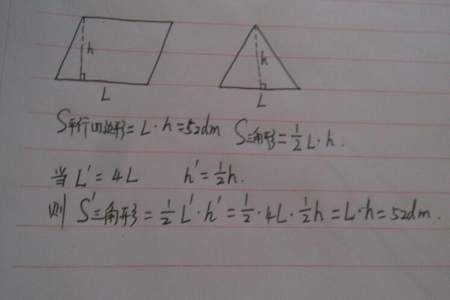 h
h
L
L
S平行四边形=L·h=52dm S三角形=½L·h.
当L'=4L h'=½h.
则 S'三角形=½L'·h'=½·4L·½h=L·h=52dm.